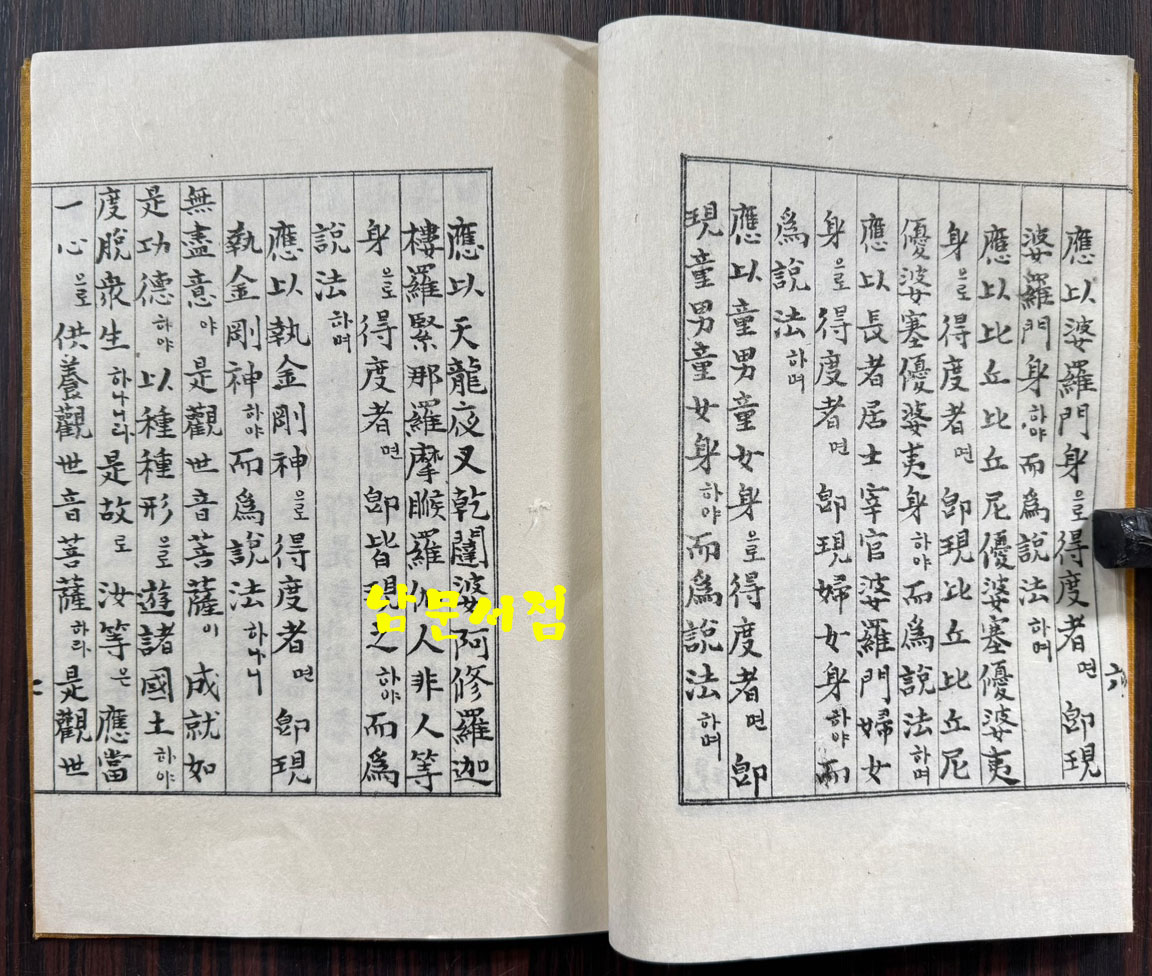 應以婆羅門身으로得度者면卽現
婆羅門身하야而爲說法하며
應以比丘比丘尼優婆塞優婆夷
身으로得度者면卽現比丘比丘尼
優婆塞優婆夷身하야而爲說法하며
應以長者居士宰官婆羅門婦女
身으로得度者면卽現婦女身하야而
爲說法하며
應以童男童女身으로得度者면卽
現童男童女身하야而爲說法하며
六
應以天龍夜叉乾闥婆阿修羅迦
樓羅緊那羅摩睺羅伽人非人等
身으로得度者면卽皆現之하야而爲
說法하며
應以執金剛神으로得度者면卽現
執金剛神하야而爲說法하나니
無盡意야是觀世音菩薩이成就如
是功德하야以種種形으로遊諸國土하야
度脫衆生하나니라是故로汝等은應當
一心으로供養觀世音菩薩하라是觀世
남문서점